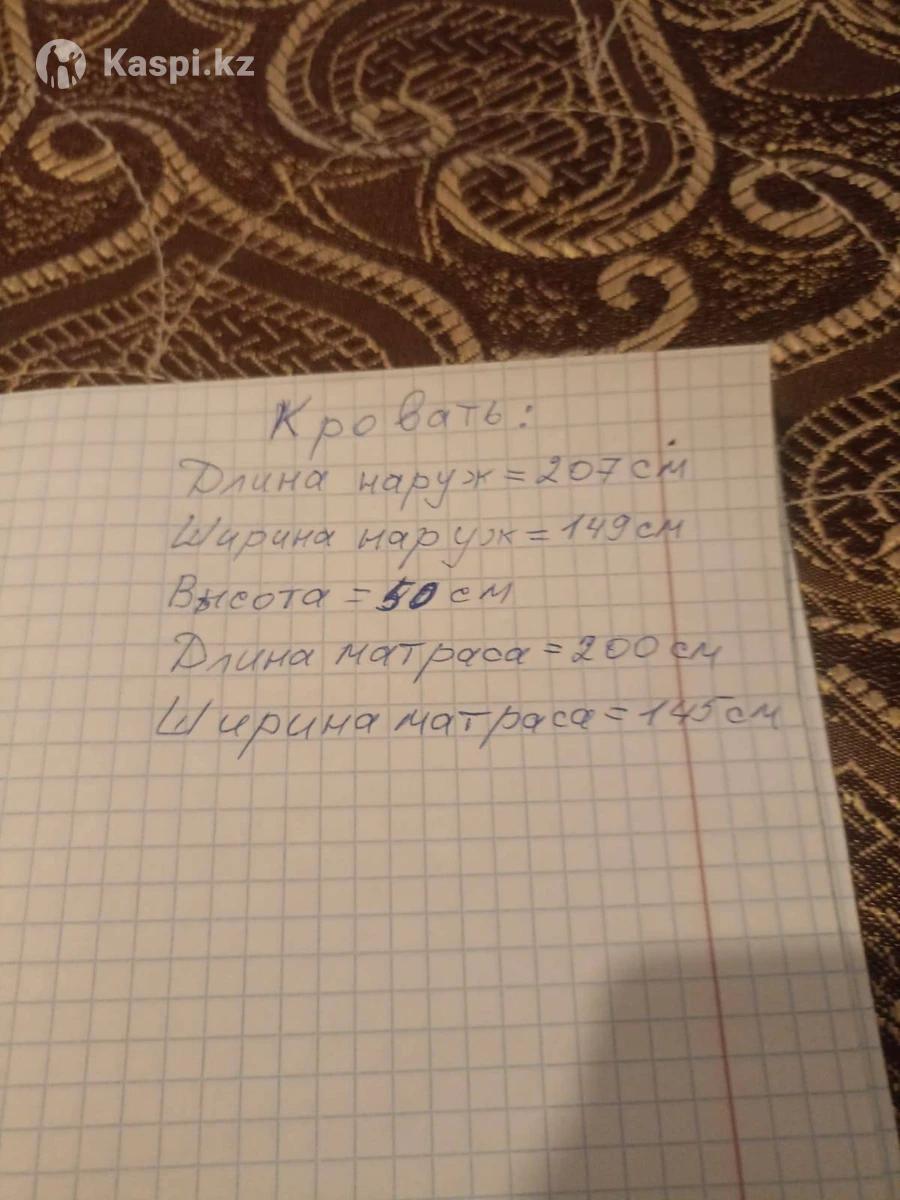 Kaspi.kz
Кровать:
Длина наруж = 207 см
Ширина наруж = 149 см
Высота = 50 см
Длина матраса = 200 см
Ширина матраса = 145 см